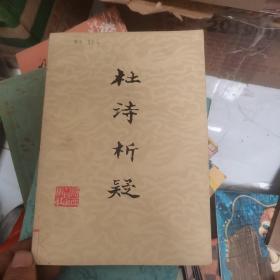 杜诗析疑